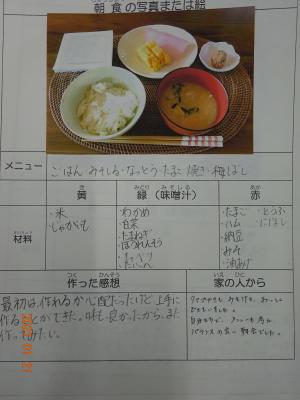 朝食の写真または絵
メニュー
ごはん・みそしる・なっとう・たまご焼き・梅ぼし
き
黄
みどり みそしる
緑(味噌汁)
あか
赤
ざいりょう
材料
・米
・じゃがいも
・わかめ
・白菜
・たまねぎ
・ほうれんそう
・たまご ・とうふ
・ハム ・にぼし
・納豆
・みそ
・油あげ
つく かんそう
作った感想
いえ ひと
家の人から
最初は、作れるか心配だったけど上手に
作ることができた。味も良かったから、また
作ってみたい。
バランスの良い朝食でした。